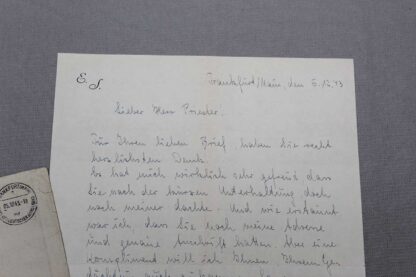 E. S.
Frankfurt/Main, den 5.12.43
Lieber Herr
Für Ihren lieben Brief haben Sie recht
herzlichsten Dank.
Es hat mich wirklich sehr gefreut dass
Sie nach der kurzen Unterhaltung doch
noch meiner dachte. Und wie erstaunt
war ich, dass Sie noch meine Adresse
und genaue Anschrift hatten. Aber eine
Kompliment will ich Ihnen Ihrem Ge-